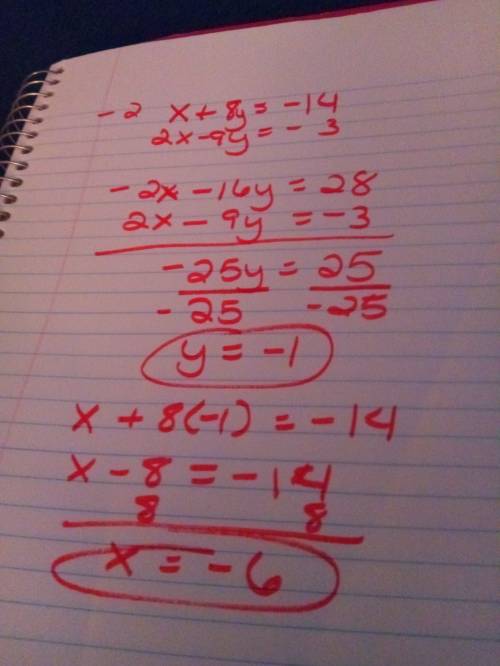 -2 x + 8y = -14
2x - 9y = - 3
-2x - 16y = 28
2x - 9y = -3
-25y = 25
-25 -25
y = -1
x + 8(-1) = -14
x - 8 = -14
8 8
x = -6